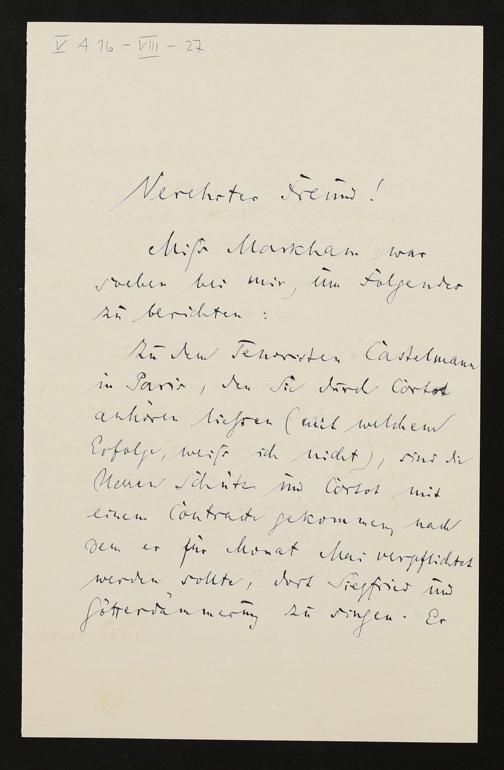 V A 16 - VIII - 27
Verehrter Freund!
Miss Markham war
soeben bei mir, um Folgendes
zu berichten:
Zu dem Tenoristen Castelmann
in Paris, den Sie durch Cortot
anhören liessen (mit welchem
Erfolge, weiss ich nicht), sind die
Herren Schütz und Cortot mit
einem Contracte gekommen, nach
dem er für Monat Mai verpflichtet
werden sollte, dort Siegfried und
Götterdämmerung zu singen. Er